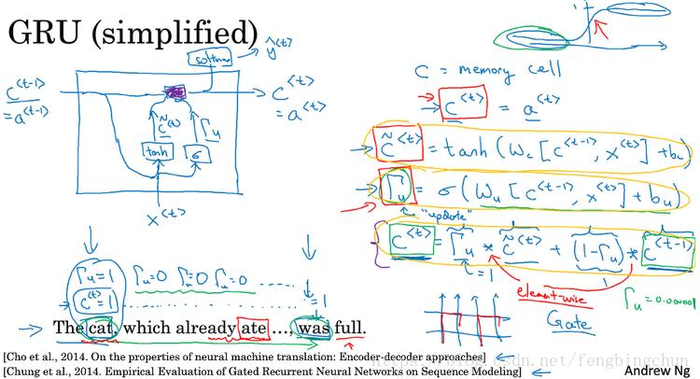 GRU (simplified)
softmax
ŷ^<t>
c^<t-1>
= a^<t-1>
c^<t>
= a^<t>
c̃^<t>
Γu
tanh
σ
x^<t>
1
C = memory cell
→ c^<t> = a^<t>
→ c̃^<t> = tanh (Wc [c^<t-1>, x^<t>] + bc)
→ Γu = σ (Wu [c^<t-1>, x^<t>] + bu)
"update"
c^<t> = Γu * c̃^<t> + (1-Γu) * c^<t-1>
element-wise
Γu = 0.000001
Gate
Γu = 1 Γu = 0 Γu = 0 Γu = 0
c^<t> = 1 ... = 1
→ The cat, which already ate ..., was full.
[Cho et al., 2014. On the properties of neural machine translation: Encoder-decoder approaches] ←
[Chung et al., 2014. Empirical Evaluation of Gated Recurrent Neural Networks on Sequence Modeling] ←
Andrew Ng